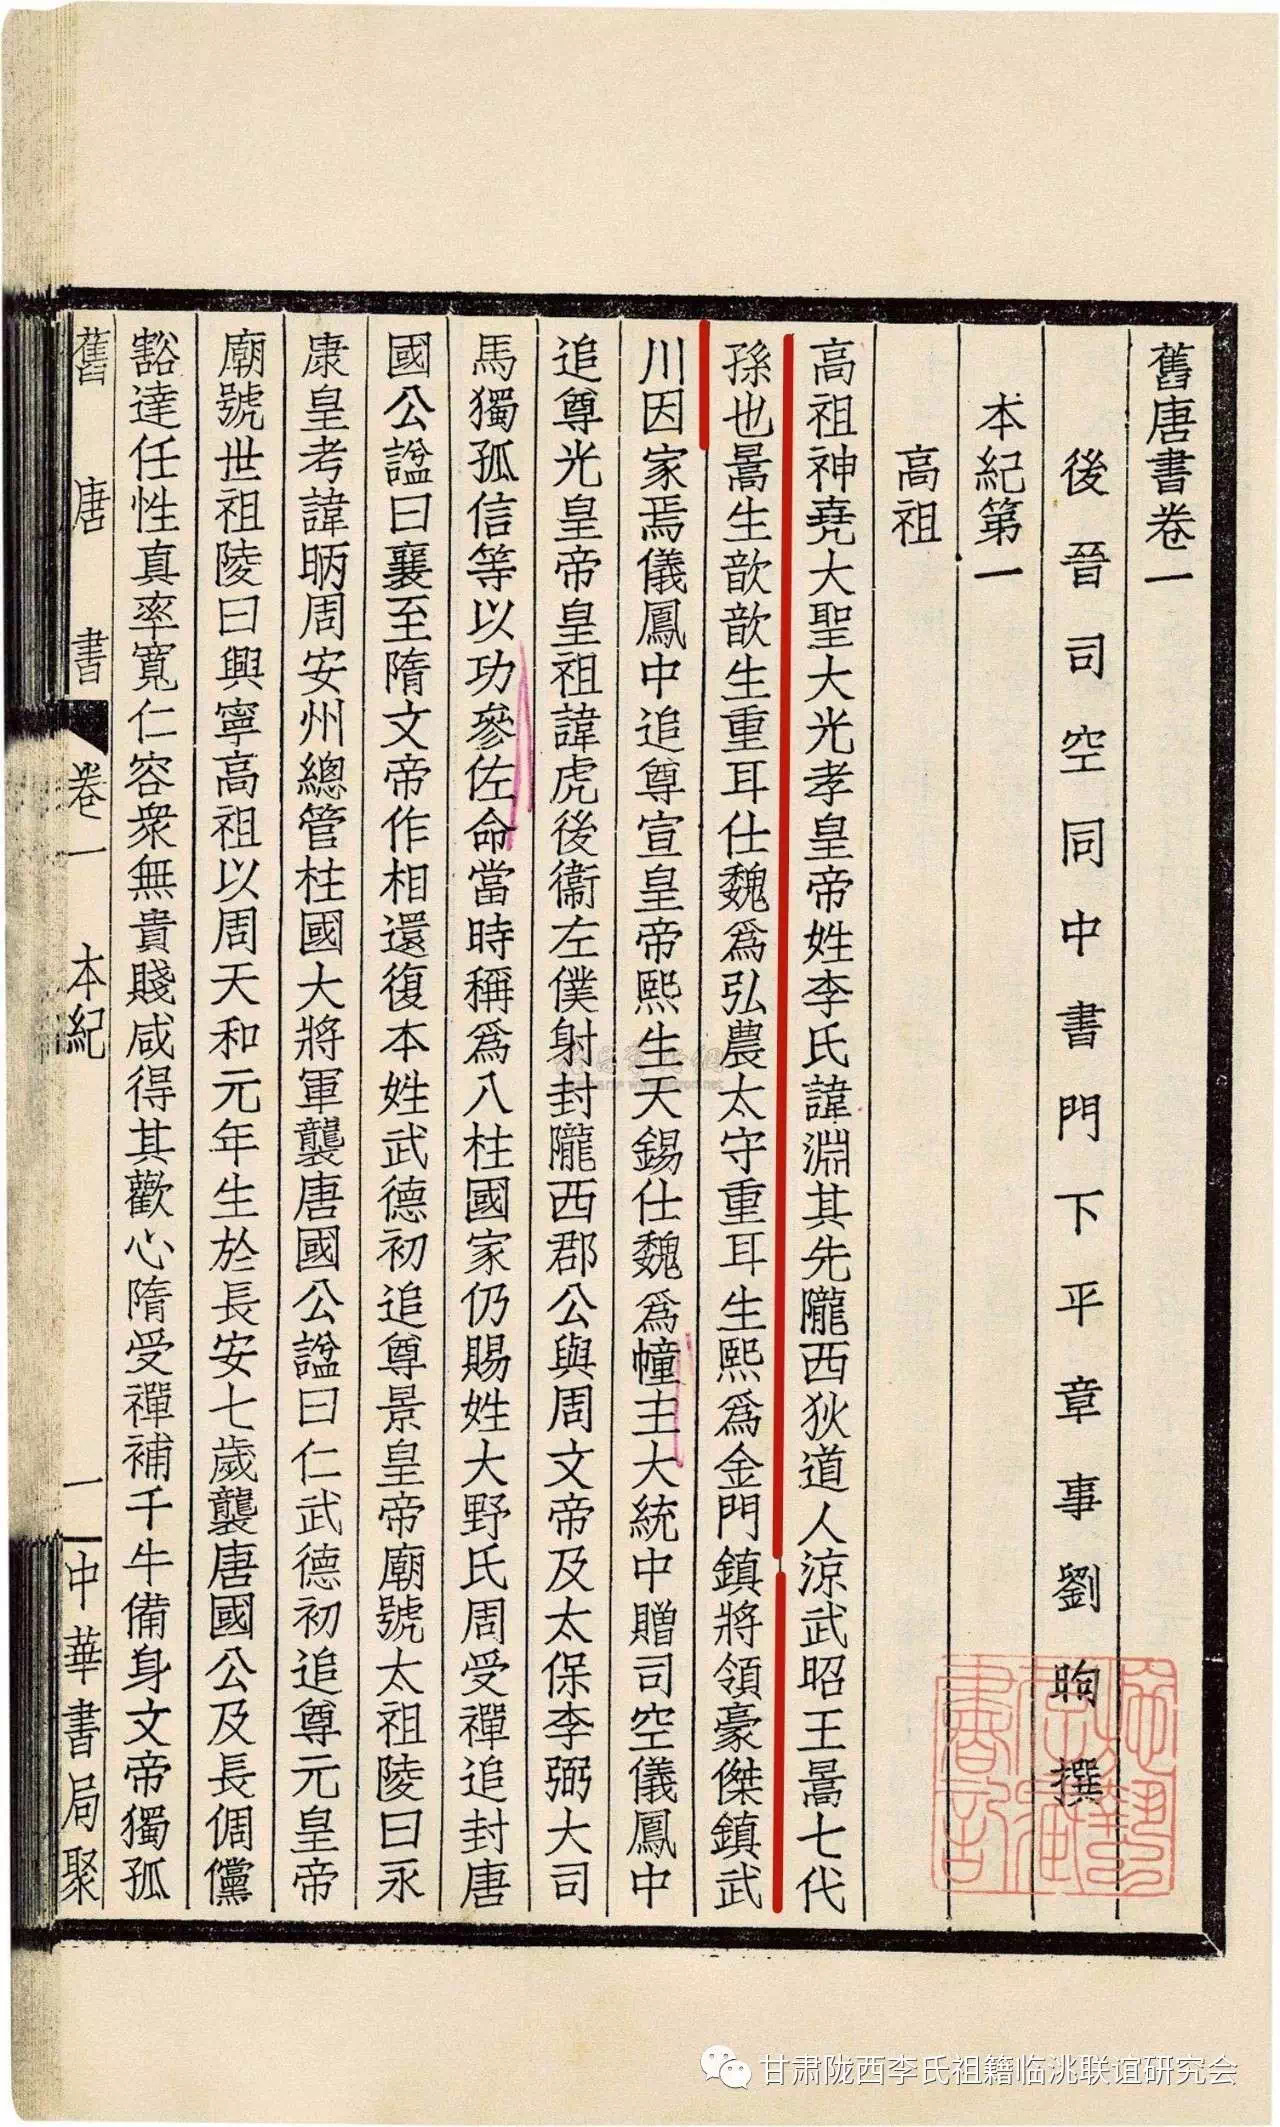 舊唐書卷一
後晉司空同中書門下平章事劉昫撰
本紀第一
高祖
高祖神堯大聖大光孝皇帝姓李氏諱淵其先隴西狄道人涼武昭王暠七代
孫也暠生歆歆生重耳仕魏爲弘農太守重耳生熙爲金門鎮將領豪傑鎮武
川因家焉儀鳳中追尊宣皇帝熙生天錫仕魏爲幢主大統中贈司空儀鳳中
追尊光皇帝皇祖諱虎後衞左僕射封隴西郡公與周文帝及太保李弼大司
馬獨孤信等以功參佐命當時稱爲八柱國家仍賜姓大野氏周受禪追封唐
國公諡曰襄至隋文帝作相還復本姓武德初追尊景皇帝廟號太祖陵曰永
康皇考諱昞周安州總管柱國大將軍襲唐國公諡曰仁武德初追尊元皇帝
廟號世祖陵曰興寧高祖以周天和元年生於長安七歲襲唐國公及長倜儻
豁達任性真率寬仁容衆無貴賤咸得其歡心隋受禪補千牛備身文帝獨孤
舊唐書 卷一 本紀 一 中華書局聚
甘肃陇西李氏祖籍临洮联谊研究会